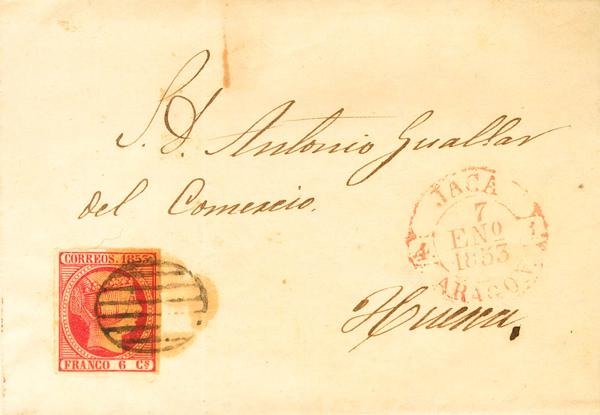 S. D. Antonio Guallar
del Comercio.
JACA
7
ENº
1853
ARAGON.
Huesca,
CORREOS. 1853
FRANCO 6 Cs